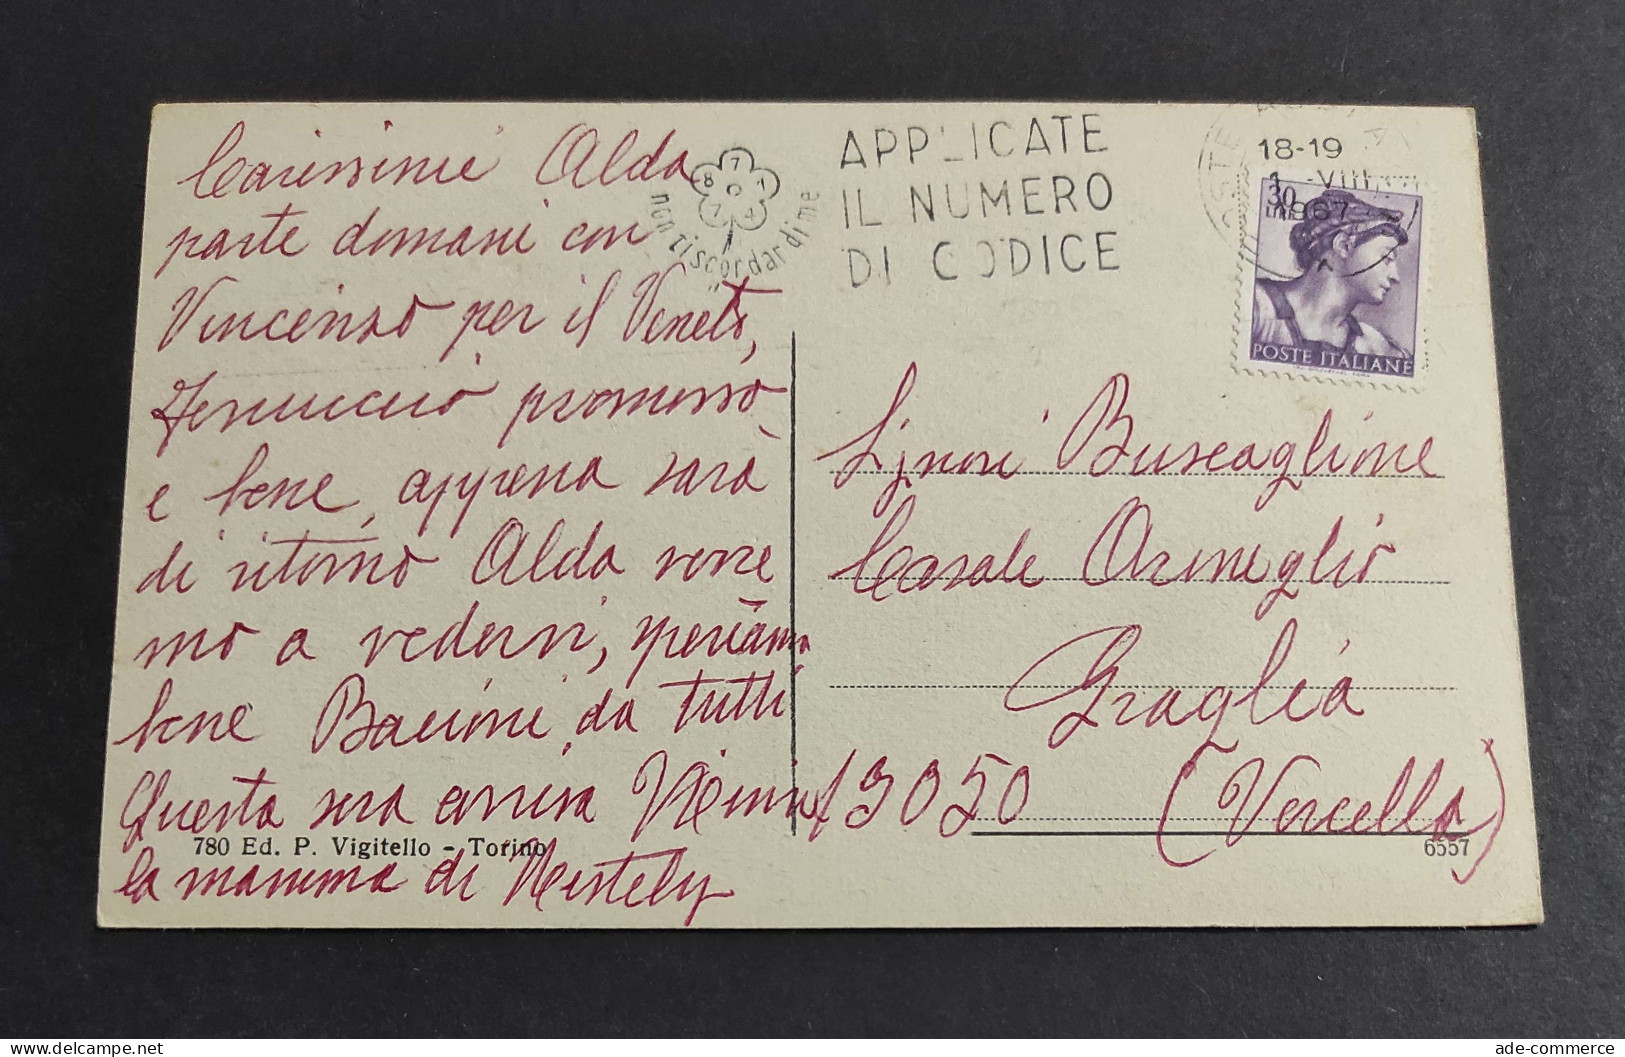 Carissimi Alda
parte domani con
Vincenzo per il Veneto,
Ferruccio promosso
e bene, appena sarà
di ritorno Alda verre
mo a vedervi, speriamo
bene Bacioni da tutti
Questa sera arriva
la mamma di
780 Ed. P. Vigitello - Torino
8 7 1 7 4
non ti scordar di me
APPLICATE
IL NUMERO
DI CODICE
POSTE
18-19
1 -VIII
1967
30
LIRE
POSTE ITALIANE
Signori Buscaglione
Casale Ormeglio
Graglia
13050 (Vercelli)
6557
ade-commerce
delcampe.net
ade-commerce